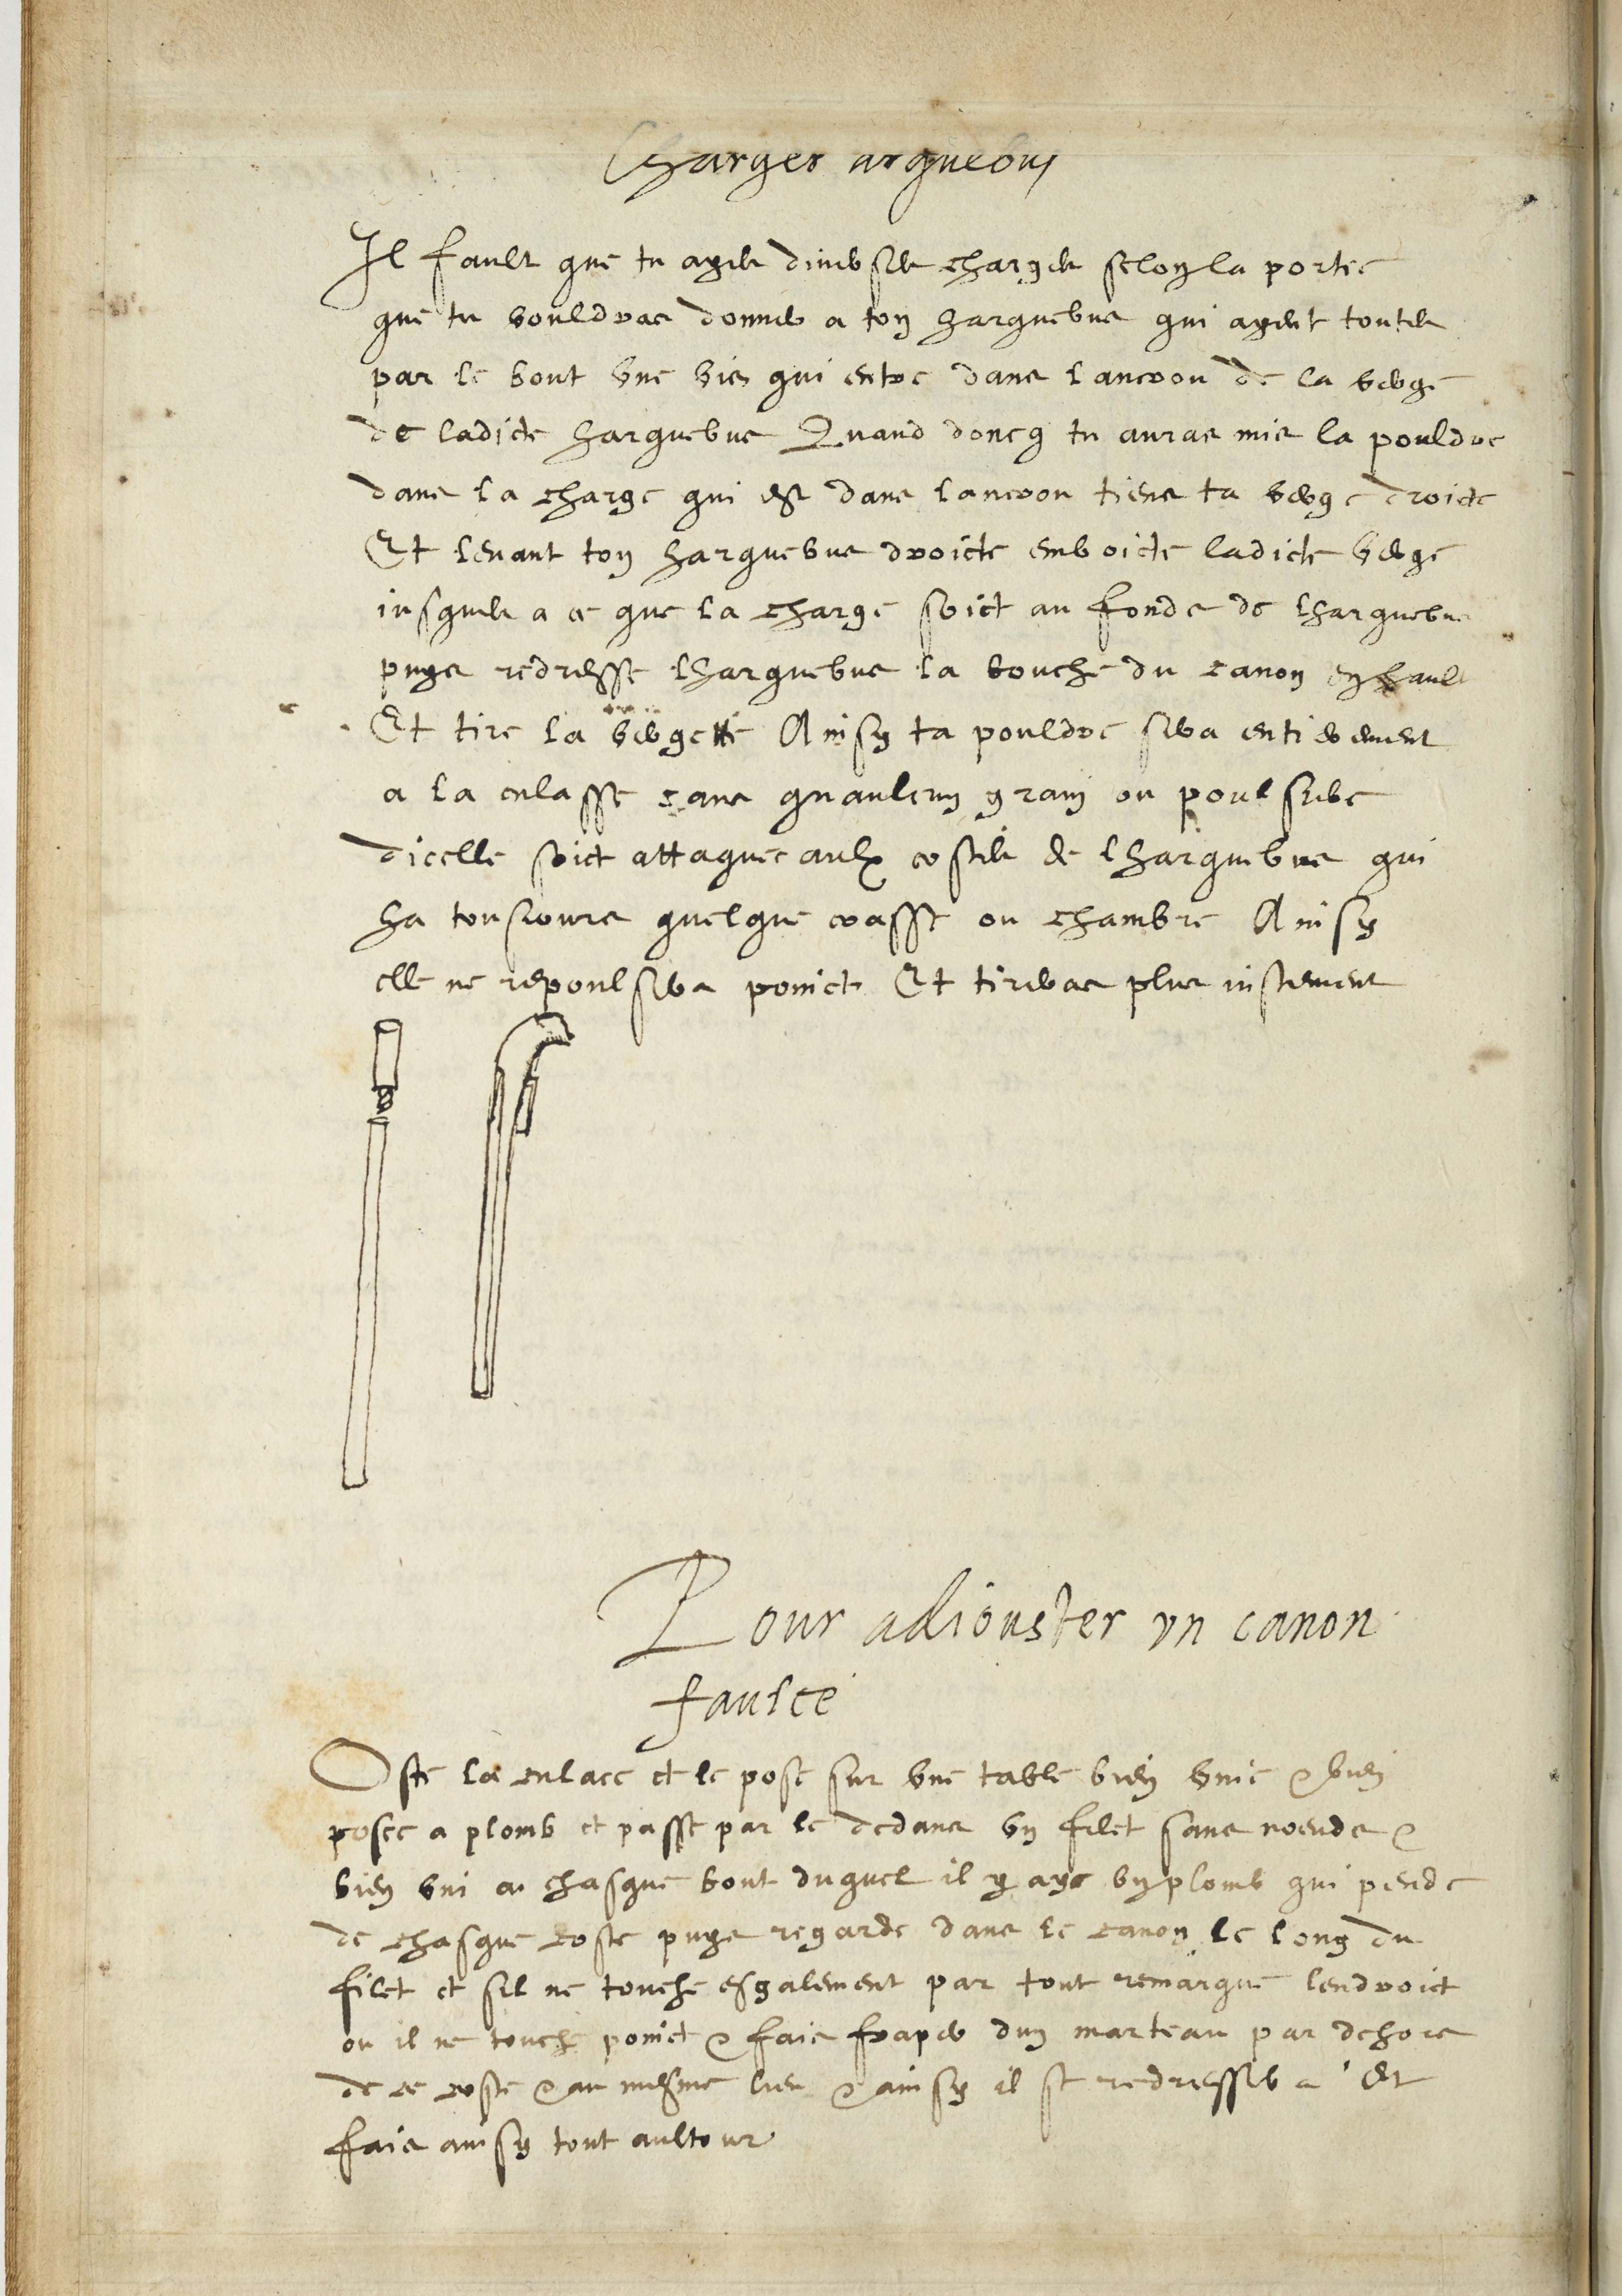 Charger arquebus
Il fault que tu ayes diverses charges selon la portee
que tu vouldras donner a ton harquebus qui ayent toutes
par le bout une vis qui entre dans lancron de la verge
de ladicte harquebus Quand doncq tu auras mis la pouldre
dans la charge qui est dans lancron tiens ta verge droicte
Et levant ton harquebus droicte emboicte ladicte verge
iusques a ce que la charge soict au fonds de lharquebus
puys redresse lharquebus la bouche du canon en hault
Et tire la vergette Ainsy ta pouldre sera entierement
a la culasse sans quaulcun grain ou poulsiere
dicelle soict attaquee aulx costes de lharquebus qui
ha tousiours quelque crasse ou chambre Ainsy
elle ne repoulsera poinct Et tireras plus iustement
Pour adiouster un canon
faulce
Oste la culace et le pose sur une table bien unie & bien
posee a plomb et passe par le dedans un filet sans noeuds &
bien uni a chasque bout duquel il y aye un plomb qui pende
de chasque coste puys regarde dans le canon le long du
filet et sil ne touche esgalement par tout remarque lendroict
ou il ne touche poinct & fais fraper dun marteau par dehors
de ce coste & au mesme lieu & ainsy il se redressera Et
fais ainsy tout aultour